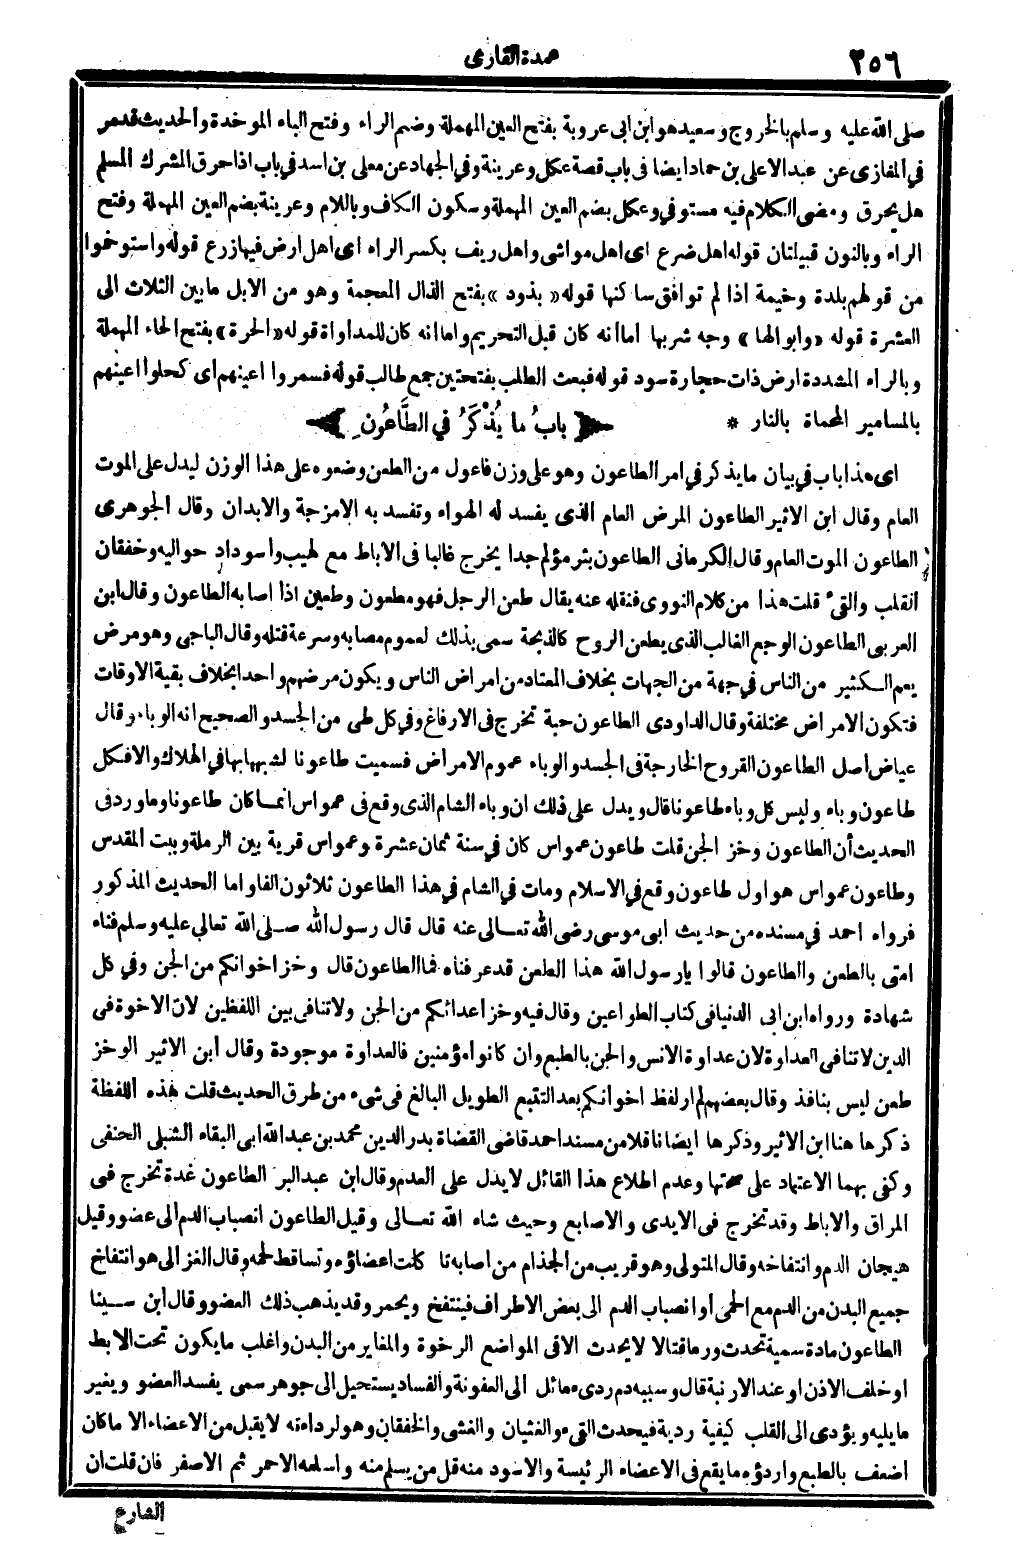 ٢٥٦
عمدة القاري
صلى الله عليه وسلم بالخروج وسعيد هو ابن ابى عروبة بفتح العين المهملة وضم الراء وفتح الباء الموحدة والحديث قد مر
في المغازى عن عبد الاعلى بن حماد ايضا فى باب قصة عكل وعرينة وفي الجهاد عن معلى بن اسد في باب اذا حرق المشرك المسلم
هل يحرق ومضى الكلام فيه مستوفي وعكل بضم العين المهملة وسكون الكاف وباللام وعرينة بضم العين المهملة وفتح
الراء وبالنون قبيلتان قوله اهل ضرع اى اهل مواشى واهل ريف بكسر الراء اى اهل ارض فيها زرع قوله واستوخموا
من قولهم بلدة وخيمة اذا لم توافق ساكنها قوله «بذود» بفتح الذال المعجمة وهو من الابل ما بين الثلاث الى
العشرة قوله «وابوالها» وجه شربها اما أنه كان قبل التحريم واما أنه كان للمداواة قوله «الحرة» بفتح الحاء المهملة
وبالراء المشددة ارض ذات حجارة سود قوله فبعث الطلب بفتحتين جمع طالب قوله فسمروا اعينهم اى كحلوا اعينهم
بالمسامير المحماة بالنار * باب ما يُذْكَرُ فِي الطَّاعُونِ
اى هذا باب في بيان ما يذكر في امر الطاعون وهو على وزن فاعول من الطعن وضعوه على هذا الوزن ليدل على الموت
العام وقال ابن الاثير الطاعون المرض العام الذى يفسد له الهواء وتفسد به الامزجة والابدان وقال الجوهرى
الطاعون الموت العام وقال الكرمانى الطاعون بثر مؤلم جدا يخرج غالبا فى الاباط مع لهيب واسوداد حواليه وخفقان
القلب والقىء قلت هذا من كلام النووى فنقله عنه يقال طعن الرجل فهو مطعون وطعين اذا اصابه الطاعون وقال ابن
العربى الطاعون الوجع الغالب الذى يطعن الروح كالذبحة سمى بذلك لعموم مصابه وسرعة قتله وقال الباجى وهو مرض
يعم الكثير من الناس في جهة من الجهات بخلاف المعتاد من امراض الناس ويكون مرضهم واحدا بخلاف بقية الاوقات
فتكون الامراض مختلفة وقال الداودى الطاعون حبة تخرج فى الارفاغ وفي كل طى من الجسد والصحيح انه الوباء وقال
عياض أصل الطاعون القروح الخارجة فى الجسد والوباء عموم الامراض فسميت طاعونا لشبهها بها في الهلاك والا فكل
طاعون وباء وليس كل وباء طاعونا قال ويدل على ذلك ان وباء الشام الذى وقع فى عمواس انما كان طاعونا وما ورد فى
الحديث أن الطاعون وخز الجن قلت طاعون عمواس كان في سنة ثمان عشرة وعمواس قرية بين الرملة وبيت المقدس
وطاعون عمواس هو اول طاعون وقع في الاسلام ومات في الشام في هذا الطاعون ثلاثون الفا واما الحديث المذكور
فرواه احمد في مسنده من حديث ابى موسى رضى الله تعالى عنه قال قال رسول الله صلى الله تعالى عليه وسلم فناء
امتى بالطعن والطاعون قالوا يارسول الله هذا الطعن قد عرفناه فما الطاعون قال وخز اخوانكم من الجن وفي كل
شهادة ورواه ابن ابى الدنيا فى كتاب الطواعين وقال فيه وخز اعدائكم من الجن ولا تنافى بين اللفظين لان الاخوة فى
الدين لا تنافى العداوة لان عداوة الانس والجن بالطبع وان كانوا مؤمنين فالعداوة موجودة وقال أبن الاثير الوخز
طعن ليس بنافذ وقال بعضهم لم ار لفظ اخوانكم بعد التتبع الطويل البالغ فى شىء من طرق الحديث قلت هذه اللفظة
ذكرها هنا ابن الاثير وذكرها ايضا ناقلا من مسند احمد قاضى القضاة بدر الدين محمد بن عبد الله ابى البقاء الشبلى الحنفى
وكفى بهما الاعتماد على صحتها وعدم اطلاع هذا القائل لا يدل على العدم وقال ابن عبد البر الطاعون غدة تخرج فى
المراق والاباط وقد تخرج فى الايدى والاصابع وحيث شاء الله تعالى وقيل الطاعون انصباب الدم الى عضو وقيل
هيجان الدم وانتفاخه وقال المتولى وهو قريب من الجذام من اصابه تا كلت اعضاؤه وتساقط لحمه وقال الغزالى هو انتفاخ
جميع البدن من الدم مع الحمى أو انصباب الدم الى بعض الاطراف فينتفخ ويحمر وقد يذهب ذلك العضو وقال ابن سينا
الطاعون مادة سمية تحدث ورما قتالا لا يحدث الا فى المواضع الرخوة والمغابر من البدن واغلب ما يكون تحت الابط
او خلف الاذن او عند الارنبة قال وسببه دم ردىء مائل الى العفونة والفساد يستحيل الى جوهر سمى يفسد العضو ويغير
ما يليه ويؤدى الى القلب كيفية ردية فيحدث القىء والغثيان والغشى والخفقان وهو لرداءته لا يقبل من الاعضاء الا ما كان
اضعف بالطبع واردؤه ما يقع فى الاعضاء الرئيسة والاسود منه قل من يسلم منه واسلمه الاحمر ثم الاصفر فان قلت ان
الشارع